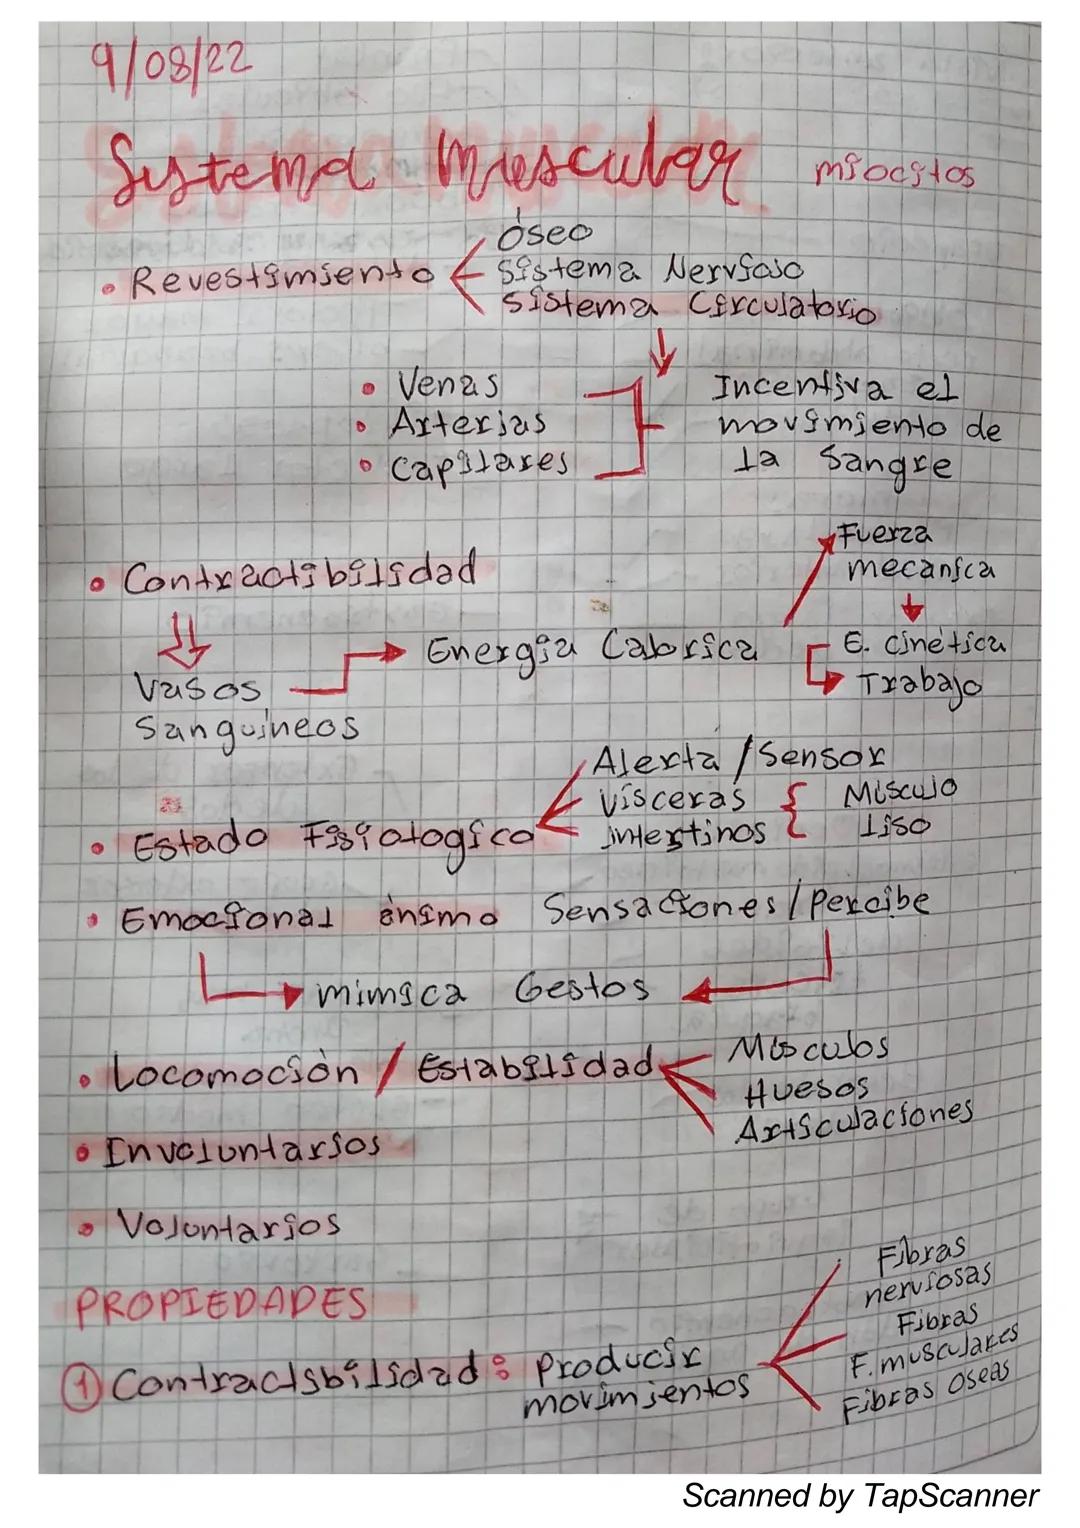 9/08/22
Sistema Muscular miocitos
Óseo
• Revestimiento Sistema Nervioso
Sistema Circulatorio
• Venas Incentiva el
• Arterias movimiento de
• Capilares la Sangre
Fuerza
• Contractibilidad mecanica
Energia Calorica E. cinética
Vasos Trabajo
Sanguineos
Alerta / Sensor
Visceras { Músculo
• Estado Fisiologico intestinos liso
• Emocional ánimo Sensaciones / Percibe
mimica Gestos
• Locomoción / Estabilidad Músculos
Huesos
Articulaciones
• Involuntarios
• Voluntarios
Fibras
nerviosas
PROPIEDADES
Fibras
① Contractibilidad: Producir F. musculares
movimientos Fibras oseas
Scanned by TapScanner